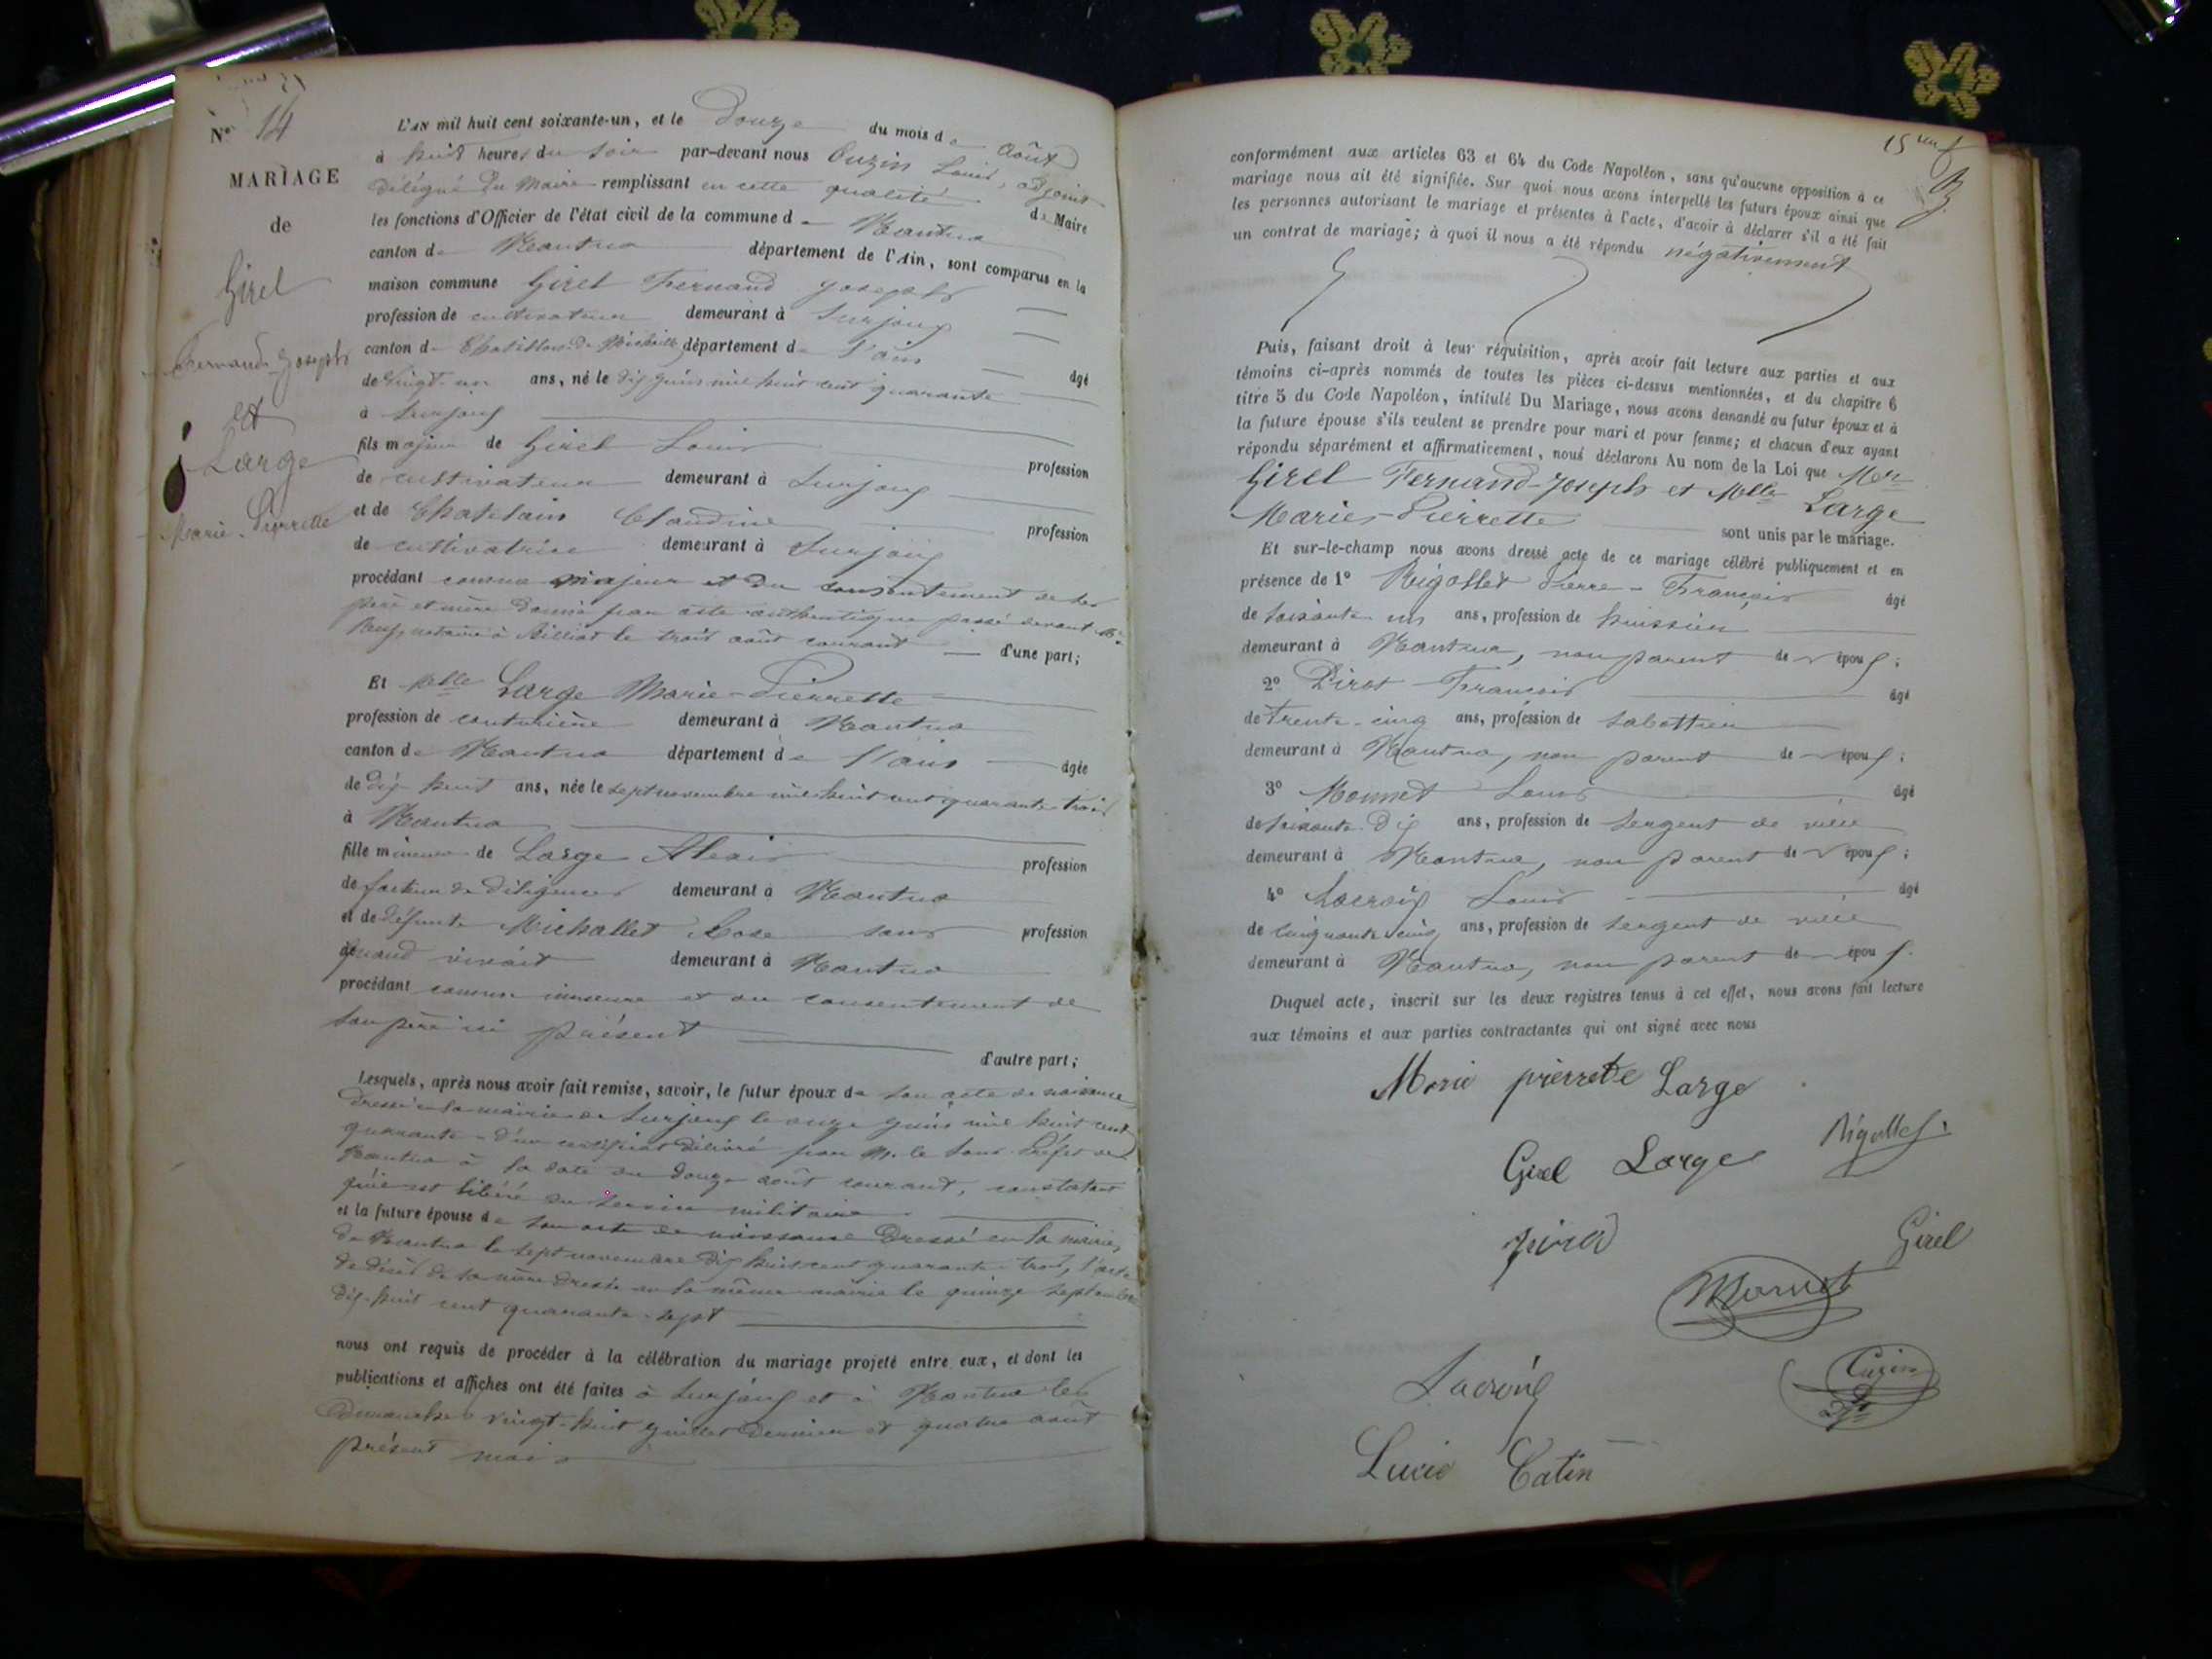 Nº 14
MARIAGE
de
Girel
Fernand-Joseph
et
Large
Marie-Pierrette
L'AN mil huit cent soixante-un, et le Douze du mois de août
à huit heures du soir par-devant nous Cuzin Louis, adjoint
délégué du Maire remplissant en cette qualité de Maire
les fonctions d'Officier de l'état civil de la commune de Nantua
canton de Nantua département de l'Ain, sont comparus en la
maison commune Girel Fernand Joseph
profession de cultivateur demeurant à Surjoux
canton de Chatillon-de-Michaille département de l'ain âgé
de vingt-un ans, né le dix juin mil huit cent quarante
à Surjoux
fils majeur de Girel Louis profession
de cultivateur demeurant à Surjoux
et de Chatelain Claudine profession
de cultivatrice demeurant à Surjoux
procédant comme majeur et du consentement de ses
père et mère donné par acte authentique passé devant Me
notaire à Billiat le trois août courant d'une part;
Et Melle Large Marie-Pierrette
profession de couturière demeurant à Nantua
canton de Nantua département de l'ain âgée
de dix-huit ans, née le sept novembre mil huit cent quarante trois
à Nantua
fille mineure de Large Alexis profession
de facteur de diligences demeurant à Nantua
et de défunte Michallet Rose sans profession
quand vivait demeurant à Nantua
procédant comme mineure et du consentement de
son père ici présent
d'autre part;
Lesquels, après nous avoir fait remise, savoir, le futur époux de son acte de naissance
dressé en la mairie de Surjoux le onze juin mil huit cent
quarante - d'un certificat délivré par M. le Sous-Préfet de
Nantua à la date du douze août courant, constatant
qu'il est libéré du service militaire.
et la future épouse de son acte de naissance dressé en la mairie
de Nantua le sept novembre dix huit cent quarante-trois, l'acte
de décès de sa mère dressé en la même mairie le quinze septembre
dix-huit cent quarante-sept
nous ont requis de procéder à la célébration du mariage projeté entre eux, et dont les
publications et affiches ont été faites à Surjoux et à Nantua les
dimanches vingt-huit juillet dernier et quatre août
présent mois
conformément aux articles 63 et 64 du Code Napoléon, sans qu'aucune opposition à ce
mariage nous ait été signifiée. Sur quoi nous avons interpellé les futurs époux ainsi que
les personnes autorisant le mariage et présentes à l'acte, d'avoir à déclarer s'il a été fait
un contrat de mariage; à quoi il nous a été répondu négativement
Puis, faisant droit à leur réquisition, après avoir fait lecture aux parties et aux
témoins ci-après nommés de toutes les pièces ci-dessus mentionnées, et du chapitre 6
titre 5 du Code Napoléon, intitulé Du Mariage, nous avons demandé au futur époux et à
la future épouse s'ils veulent se prendre pour mari et pour femme; et chacun d'eux ayant
répondu séparément et affirmativement, nous déclarons Au nom de la Loi que Mr
Girel Fernand-Joseph et Melle Large
Marie-Pierrette sont unis par le mariage.
Et sur-le-champ nous avons dressé acte de ce mariage célébré publiquement et en
présence de 1º Rigollet Pierre-François âgé
de soixante un ans, profession de huissier
demeurant à Nantua, non parent de époux;
2º Pirot François âgé
de trente-cinq ans, profession de sabottier
demeurant à Nantua, non parent de époux;
3º Monnet Louis âgé
de soixante-dix ans, profession de sergent de ville
demeurant à Nantua, non parent de époux;
4º Lacroix Louis âgé
de cinquante-cinq ans, profession de sergent de ville
demeurant à Nantua, non parent de époux.
Duquel acte, inscrit sur les deux registres tenus à cet effet, nous avons fait lecture
aux témoins et aux parties contractantes qui ont signé avec nous
Marie pierrette Large
Girel Large Rigollet
pirod Girel
Monnet
Lacroix Cuzin
Lucie Catin